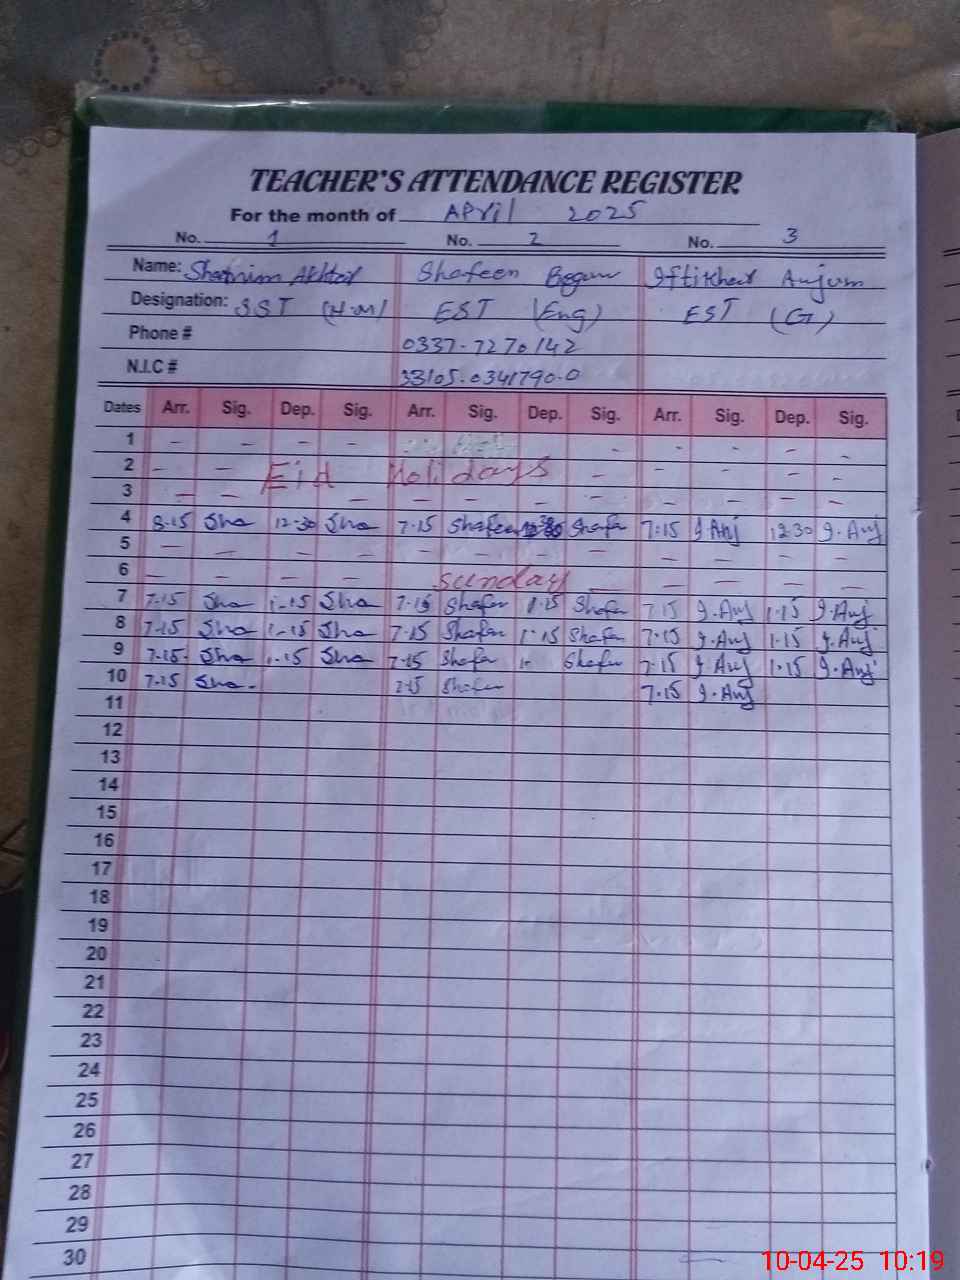 TEACHER'S ATTENDANCE REGISTER
For the month of April 2025
No. 1 No. 2 No. 3
Name: Akhtar Shafeen Begum Iftikhar Anjum
Designation: SST (H.M) EST (Eng) EST (G)
Phone # 0337-7270142
N.I.C # 33105-0341790-0
Dates Arr. Sig. Dep. Sig. Arr. Sig. Dep. Sig. Arr. Sig. Dep. Sig.
1 - - - - - - - -
2 - - Eid Holidays - - - - -
3 - - - - - - - - - -
4 8-15 Sha 12-30 Sha 7-15 Shafeen Shafen 7:15 I.Anj 12:30 I.Anj
5 - - - - - - - - - - - -
6 - - - - Sunday - - - - -
7 7-15 Sha 1-15 Sha 7-15 Shafen 1-15 Shafen 7:15 I.Anj 1-15 I.Anj
8 7-15 Sha 1-15 Sha 7-15 Shafen 1-15 Shafen 7:15 I.Anj 1-15 I.Anj
9 7-15 Sha 1-15 Sha 7-15 Shafen 1- Shafen 7-15 I.Anj 1-15 I.Anj
10 7-15 Sha 7-15 Shafen 7-15 I.Anj
11
12
13
14
15
16
17
18
19
20
21
22
23
24
25
26
27
28
29
30
10-04-25 10:19